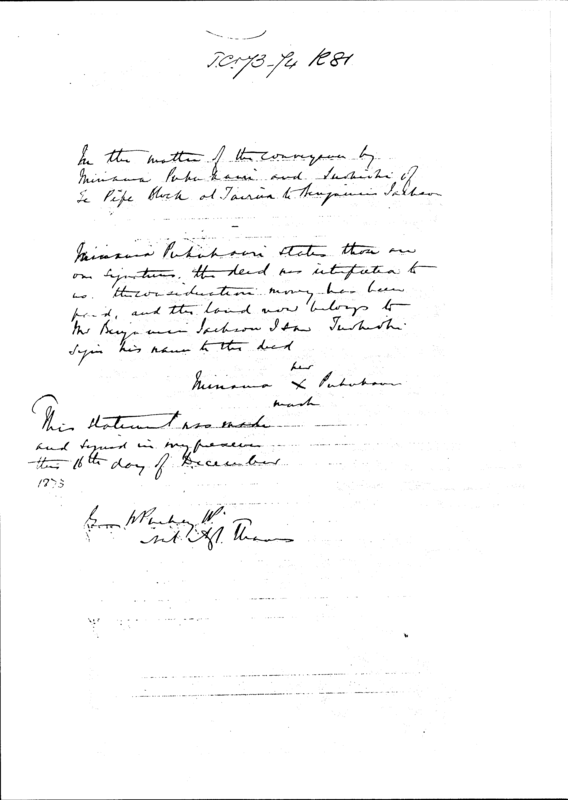 T.C. 73-74 R81
In the matter of the conveyance by
Minnana and of
Pipe Block at Tairua to Benjamin Jackson
states these are
our signatures. The deed was interpreted to
us. The consideration money has been
paid, and the land now belongs to
Mr Benjamin Jackson I saw
sign his name to the deed
her
X
mark
This statement was made
and signed in my presence
this 16th day of December
1873
Thames